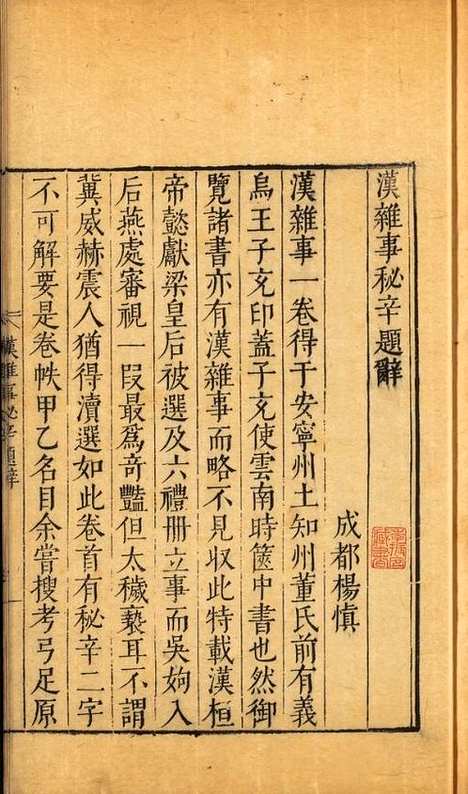 漢雜事秘辛題辭
成都楊慎
漢雜事一卷得于安寧州土知州董氏前有義
烏王子充印蓋子充使雲南時篋中書也然御
覽諸書亦有漢雜事而略不見収此特載漢桓
帝懿獻梁皇后被選及六禮冊立事而吳姁入
后燕處審視一叚最爲奇豔但太穢䙝耳不謂
冀威赫震人猶得瀆選如此卷首有秘辛二字
不可解要是卷帙甲乙名目余嘗搜考弓足原
漢雜事秘辛題辭